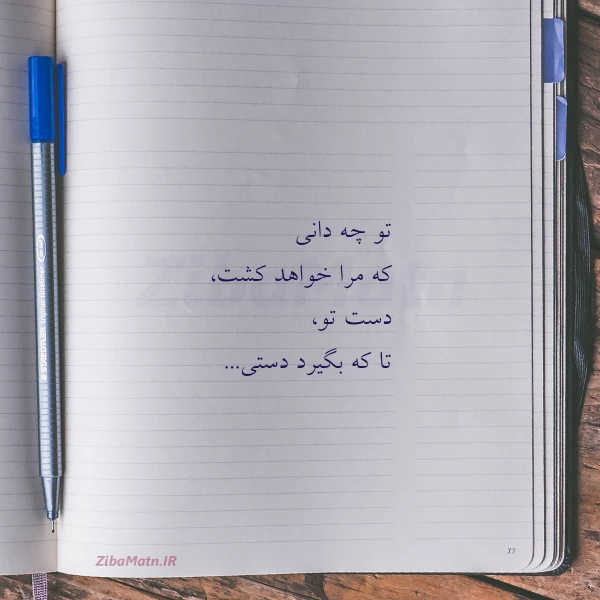 تو چه دانی
که مرا خواهد کشت،
دست تو،
تا که بگیرد دستی...
ZibaMatn.IR
STAEDTLER triplus fineliner